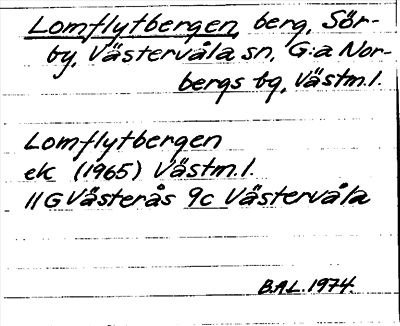 Lomflytbergen, berg, Sör-
by, Västervåla sn, G:a Nor-
bergs bg, Västm.l.
Lomflytbergen
ek (1965) Västm.l.
11G Västerås 9c Västervåla
B.A.L. 1974.